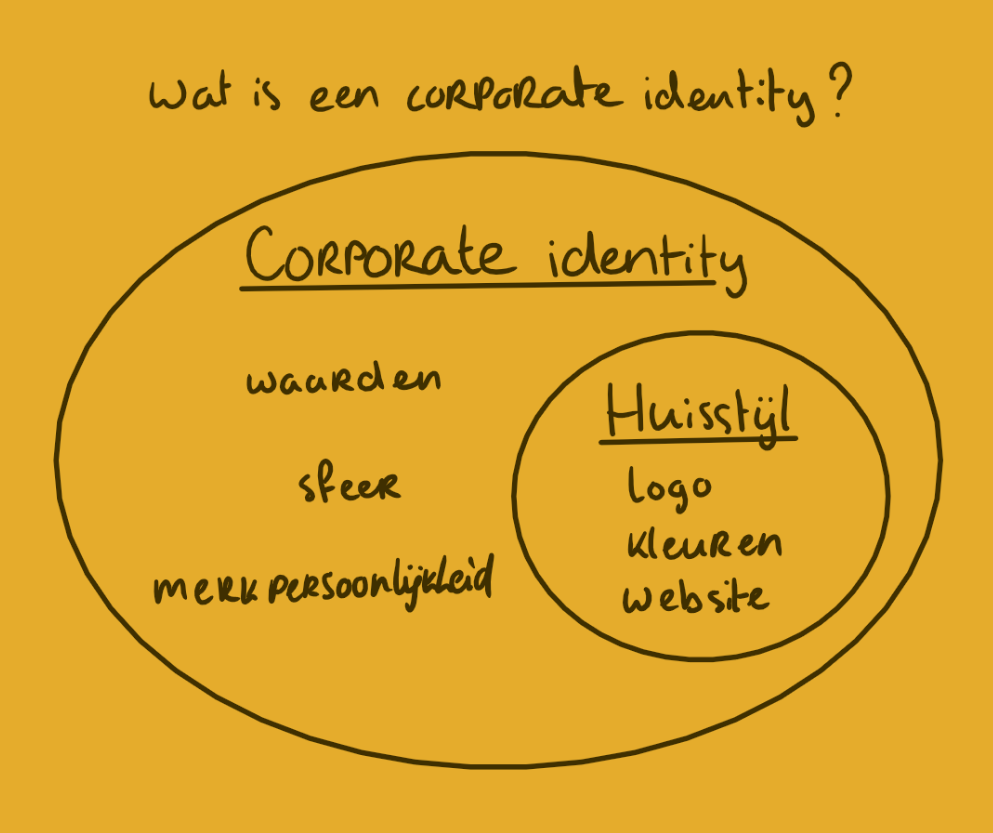 Wat is een corporate identity?
Corporate identity
waarden
sfeer
merkpersoonlijkheid
Huisstijl
logo
kleuren
website